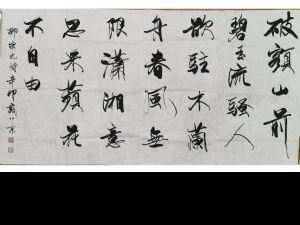 破額山前
碧玉流騷人
欲駐木蘭
舟春風無
限瀟湘意
思采蘋花
不自由
柳宗元詩辛卯